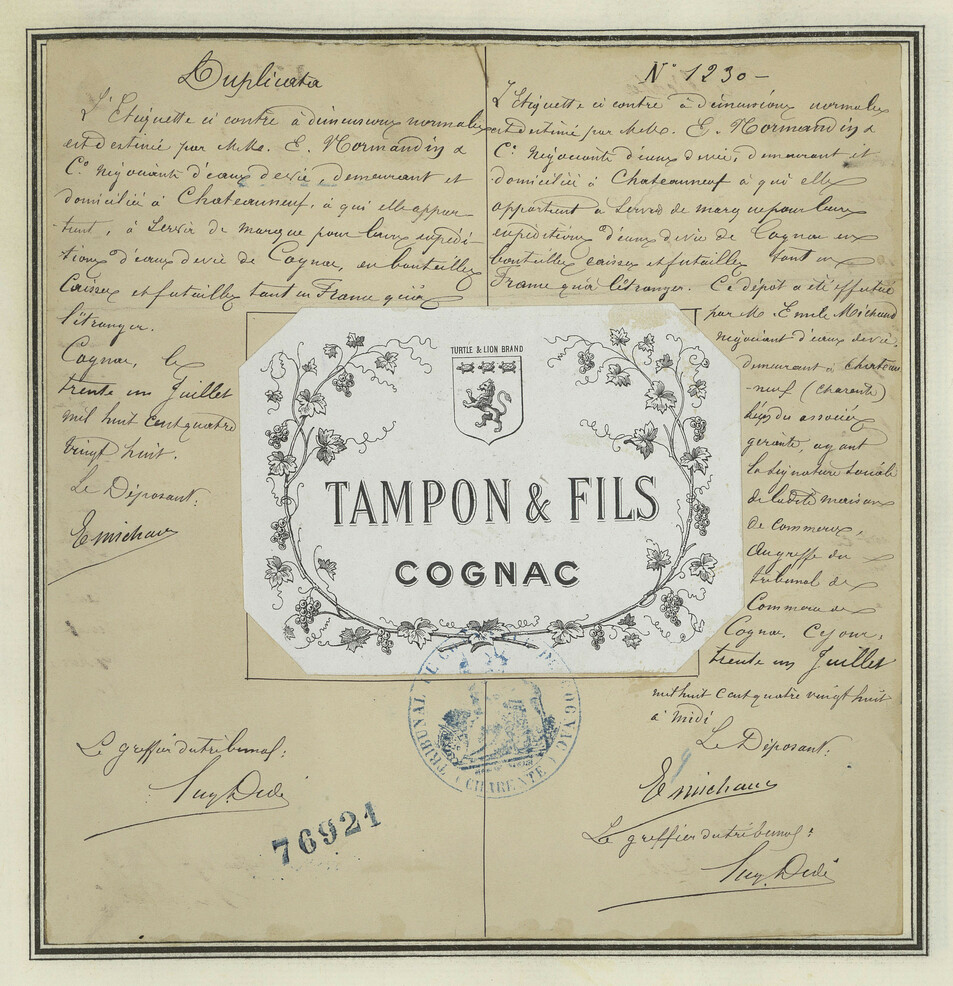 Duplicata
L'Etiquette ci contre à dimensions normales
est destinée par MM. E. Normandin &
Cie Négociants d'eaux de vie, demeurant et
domiciliés à Chateauneuf, à qui elle appar
tient, à Servir de marque pour leurs expédi-
tions d'eaux de vie de Cognac, en bouteilles
Caisses et futailles tant en France qu'à
l'étranger.
Cognac, le
trente un Juillet
mil huit cent quatre
vingt huit.
Le Déposant.
E michaud
Le greffier du tribunal:
N° 1230 -
L'Etiquette ci contre à dimensions normales
est destinée par MM. E. Normandin &
Cie Négociants d'eaux de vie, demeurant et
domiciliés à Chateauneuf à qui elle
appartient à Servir de marque pour leurs
expéditions d'eaux de vie de Cognac en
bouteilles caisses et futailles tant en
France qu'à l'étranger. Ce dépôt a été effectué
par M. Emile Michaud
négociant d'eaux de vie,
demeurant à Chateau
-neuf (Charente)
l'un des associés
gérants, ayant
la signature sociale
de la dite maison
de commerce,
au greffe du
tribunal de
Commerce de
Cognac, Ce jour,
trente un Juillet
mil huit cent quatre vingt huit
à midi
Le Déposant.
E michaud
Le greffier du tribunal:
TURTLE & LION BRAND
TAMPON & FILS
COGNAC
TRIBUNAL DE COGNAC
(CHARENTE)
76921